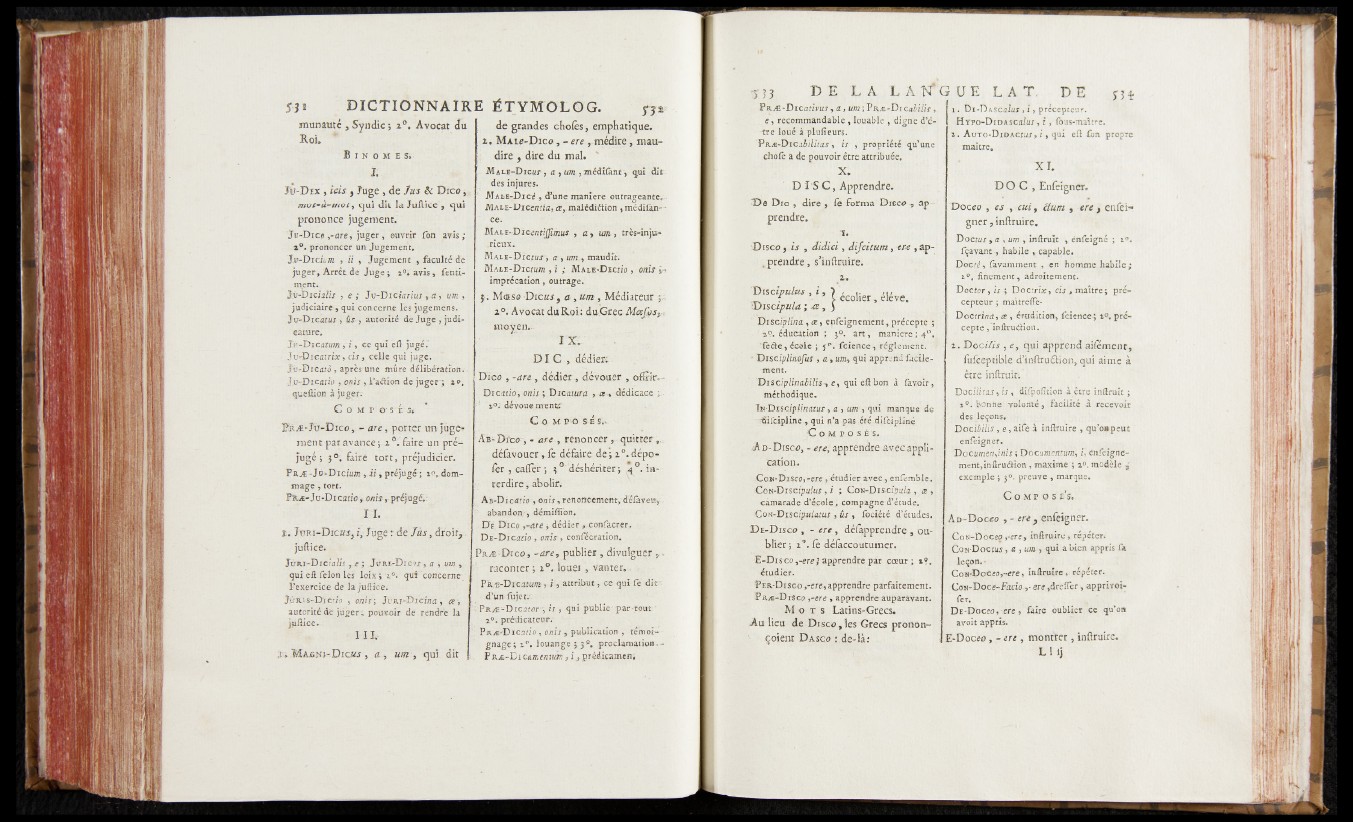 531 DICTIONNAIRE ÉTYMOLOG. 532
munauté, Syndic; 2°. Avocat du
Roi.
BINOMES.
I.
Ju-Dex, icis, Juge, de Jus & Dico,
mot-à-mot, qui dit la Justice, qui
prononce jugement.
Ju-Dico,-are, juger, ouvrir son avis;
2°. prononcer un Jugement.
Ju-Dicium, ii, Jugement, faculté de
juger, Arrêt de Juge; 2°. avis, senti-
ment.
Ju-Dicialis, e; Ju-Diciarius, a, um,
judiciaire, qui concerne les jugemens.
Ju-Dicatus, ûs, autorité de Juge, judi-
cature.
Ju-Dicatum, i, ce qui est jugé.
Ju-Dicatrix, cis, celle qui juge.
Ju-Dicatò, après une mûre délibération.
Ju-Dicatio, onis, l'action de juger; 2°.
question à juger.
COMPOSÉS.
Præ-Ju-Dico, - are, porter un juge-
ment par avance; 2°. faire un pré-
jugé; 3°. faire tort, préjudicier.
Præ-Ju-Dicium, ii, préjugé; 2°. dom-
mage, tort.
Præ-Ju-Dicatio, onis, préjugé.
II.
1. Juri-Dicus, i, Juge: de Jus, droit,
justice.
Juri-Dicialis, e; Juri-Dicus, a, um,
qui est selon les loix; 2°. qui concerne
l'exercice de la justice.
Juris-Dictio, onis; Juri-Dicina, æ,
autorité de juger: pouvoir de rendre la
justice.
III.
1. Magni-Dicus, a, um, qui dit
de grandes choses, emphatique.
2. Male-Dico, - ere, médire, mau-
dire, dire du mal.
Male-Dicus, a, um, médisant, qui dit
des injures.
Male-Dicè, d'une maniere outrageante.
Male-Dicentia, æ, malédiction, médisan-
ce.
Male-Dicentissimus, a, um, très-inju-
rieux.
Male-Dictus, a, um, maudit.
Male-Dictum, i; Male-Dictio, onis,
imprécation, outrage.
3. Mœso-Dicus, a, um, Médiateur;
2°. Avocat du Roi: du Grec Mæsos,
moyen.
IX.
DIC, dédier.
Dico, -are, dédier, dévouer, offrir.
Dicatio, onis; Dicatura, æ, dédicace;
2°. dévouement.
COMPOSÉS.
Ab-Dico, - are, renoncer, quitter,
désavouer, se défaire de; 2°. dépo-
ser, casser; 3°. déshériter; 4°. in-
terdire, abolir.
Ab-Dicatio, onis, renoncement, désaveu,
abandon, démission.
De-Dico,-are, dédier, consacrer.
De-Dicatio, onis, consécration.
Præ-Dico, -are, publier, divulguer,
raconter; 2°. louer, vanter.
Præ-Dicatum, i, attribut, ce qui se dit
d'un sujet.
Præ-Dicator, is, qui publie par-tout
2°. prédicateur.
Præ-Dicatio, onis, publication, témoi-
gnage; 2°. louange; 3°. proclamation.
Præ-Dicamentum, i, prédicamen.
533 DE LA LANGUE LAT. DE 534
Præ-Dicativus, a, um; Præ-Dicabilis,
e, recommandable, louable, digne d'ê-
tre loué à plusieurs.
Præ-Dicabilitas, is, propriété qu'une
chose a de pouvoir être attribuée.
X.
DISC, Apprendre.
De Dic, dire, se forma Disco, ap-
prendre.
1.
Disco, is, didici, discitum, ere, ap-
prendre, s'instruire.
2.
Discipulus, i, }
Discipula; æ, } écolier, éléve.
Disciplina, æ, enseignement, précepte;
2°. éducation; 3°. art, maniere; 4°.
secte, école; 5°. science, réglement.
Disciplinosus, a, um, qui apprend facile-
ment.
Disciplinabilis, e, qui est bon à savoir,
méthodique.
In-Disciplinatus, a, um, qui manque de
discipline, qui n'a pas été discipliné
COMPOSÉS.
Ad-Disco, - ere, apprendre avec appli-
cation.
Con-Disco,-ere, étudier avec, ensemble.
Con-Discipulus, i; Con-Discipula, æ,
camarade d'école, compagne d'étude.
Con-Discipulatus, ûs, société d'études.
De-Disco, - ere, désapprendre, ou-
blier; 2°. se désaccoutumer.
E-Disco,-ere; apprendre par cœur; 2°.
étudier.
Per-Disco,-ere, apprendre parfaitement.
Præ-Disco,-ere, apprendre auparavant.
Mots Latins-Grecs.
Au lieu de Disco, les Grecs pronon-
çoient Dasco: de-là:
1. Di-Dascalus, i, précepteur.
Hypo-Didascalus, i, sous-maître.
2. Auto-Didactus, i, qui est son propre
maître.
XI.
DOC, Enseigner.
Doceo, es, cui, ctum, ere, ensei-
gner, instruire.
Doctus, a, um, instruit, enseigné; 2°.
sçavant, habile, capable.
Doctè, savamment, en homme habile;
2°. finement, adroitement.
Doctor, is; Doctrix, cis, maître; pré-
cepteur; maîtresse.
Doctrina, æ, érudition, science; 2°. pré-
cepte, instruction.
2. Docilis, e, qui apprend aisément,
susceptible d'instruction, qui aime à
être instruit.
Docilitas, is, disposition à être instruit;
2°. bonne volonté, facilité à recevoir
des leçons.
Docibilis, e, aisé à instruire, qu'on peut
enseigner.
Documen, inis; Documentum, i, enseigne-
ment, instruction, maxime; 2°. modèle,
exemple; 3°. preuve, marque.
COMPOSÉS.
Ad-Doceo, - ere, enseigner.
Con-Doceo,-ere, instruire, répéter.
Con-Doctus, a, um, qui a bien appris sa
leçon.
Con-Doceo,-ere, instruire, répéter.
Con-Doce-Facio, - ere, dresser, apprivoi-
ser.
De-Doceo, ere, faire oublier ce qu'on
avoit appris.
E-Doceo, - ere, montrer, instruire.
Ll ij